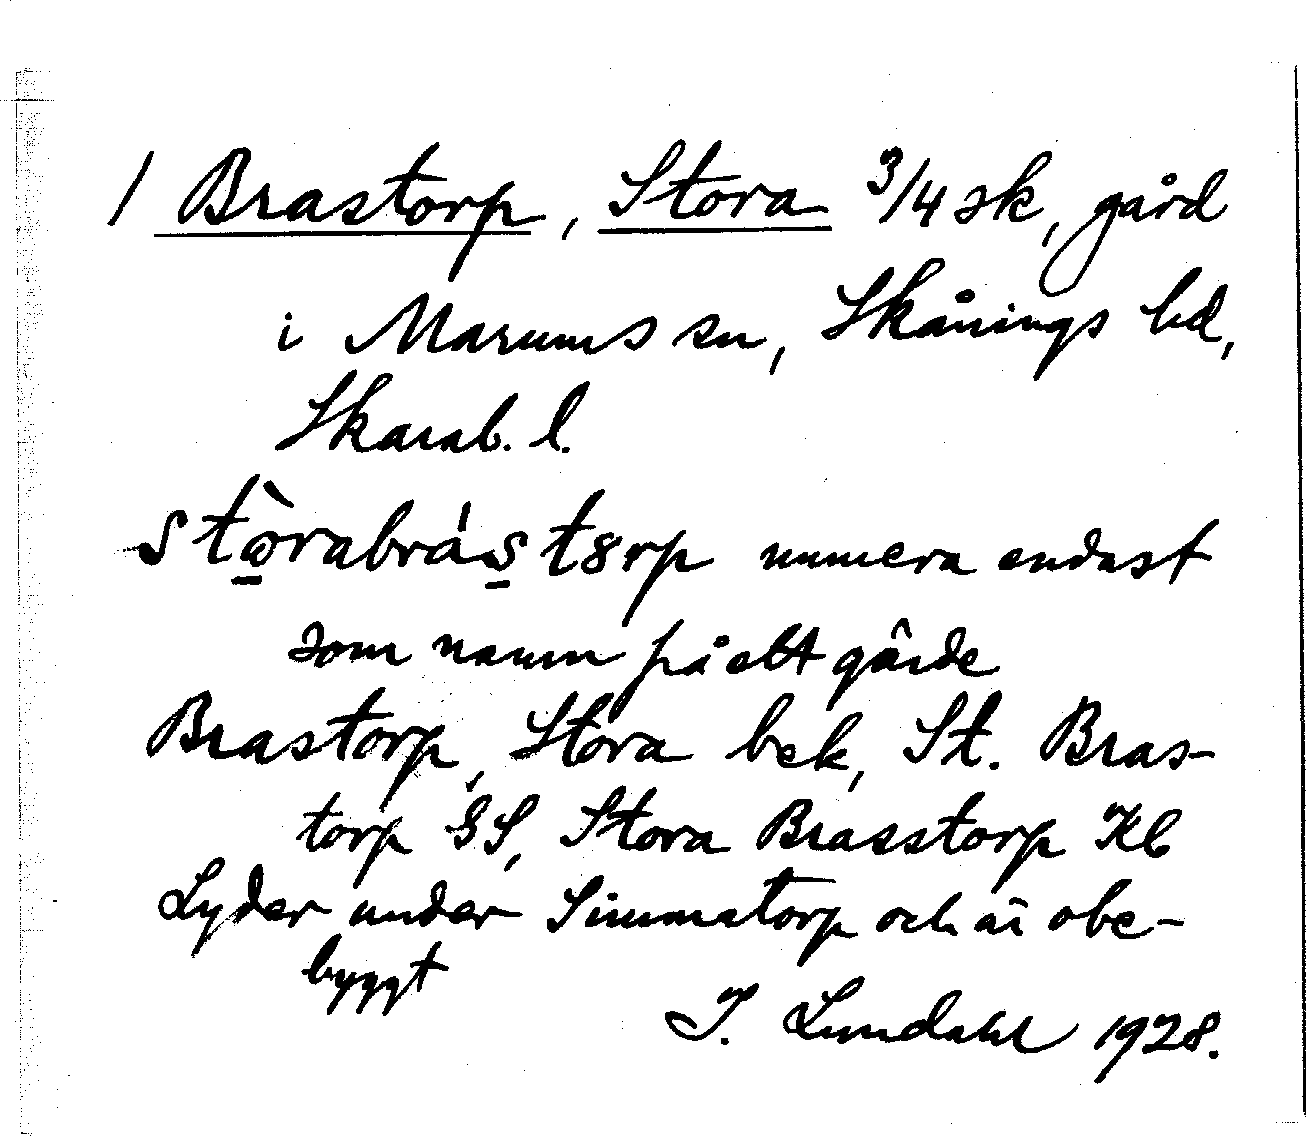 1 Brastorp, Stora 3/4 sk, gård
i Marums sn, Skånings hd,
Skarab. l.
stòrabrástorp numera endast
som namn på ett gärde
Brastorp, Stora bek, St. Bras-
torp GS, Stora Brasstorp Kb
Lyder under Simmatorp och är obe-
byggt
I. Lundahl 1928.